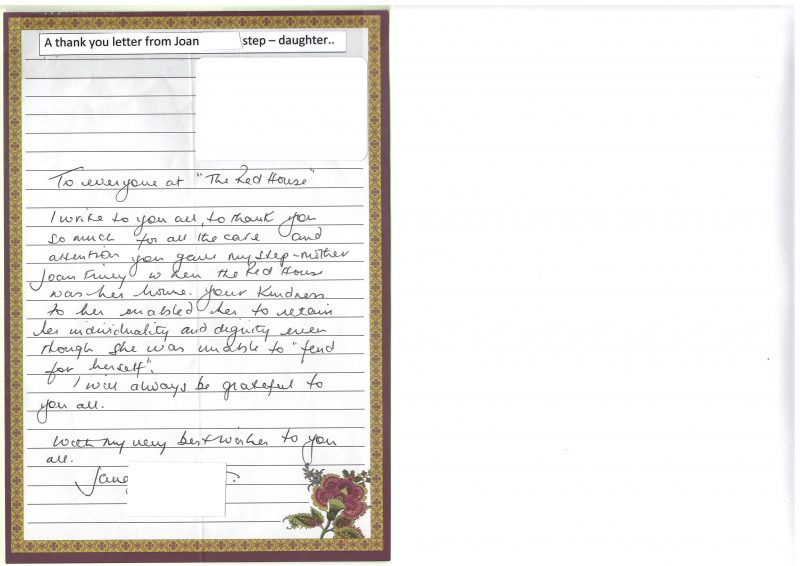 A thank you letter from Joan step – daughter..
To everyone at "The Red House"
I write to you all, to thank you
so much for all the care and
attention you gave my step-mother
Joan when the Red House
was her home. Your kindness
to her enabled her to retain
her individuality and dignity even
though she was unable to "fend
for herself".
I will always be grateful to
you all.
With my very best wishes to you
all.